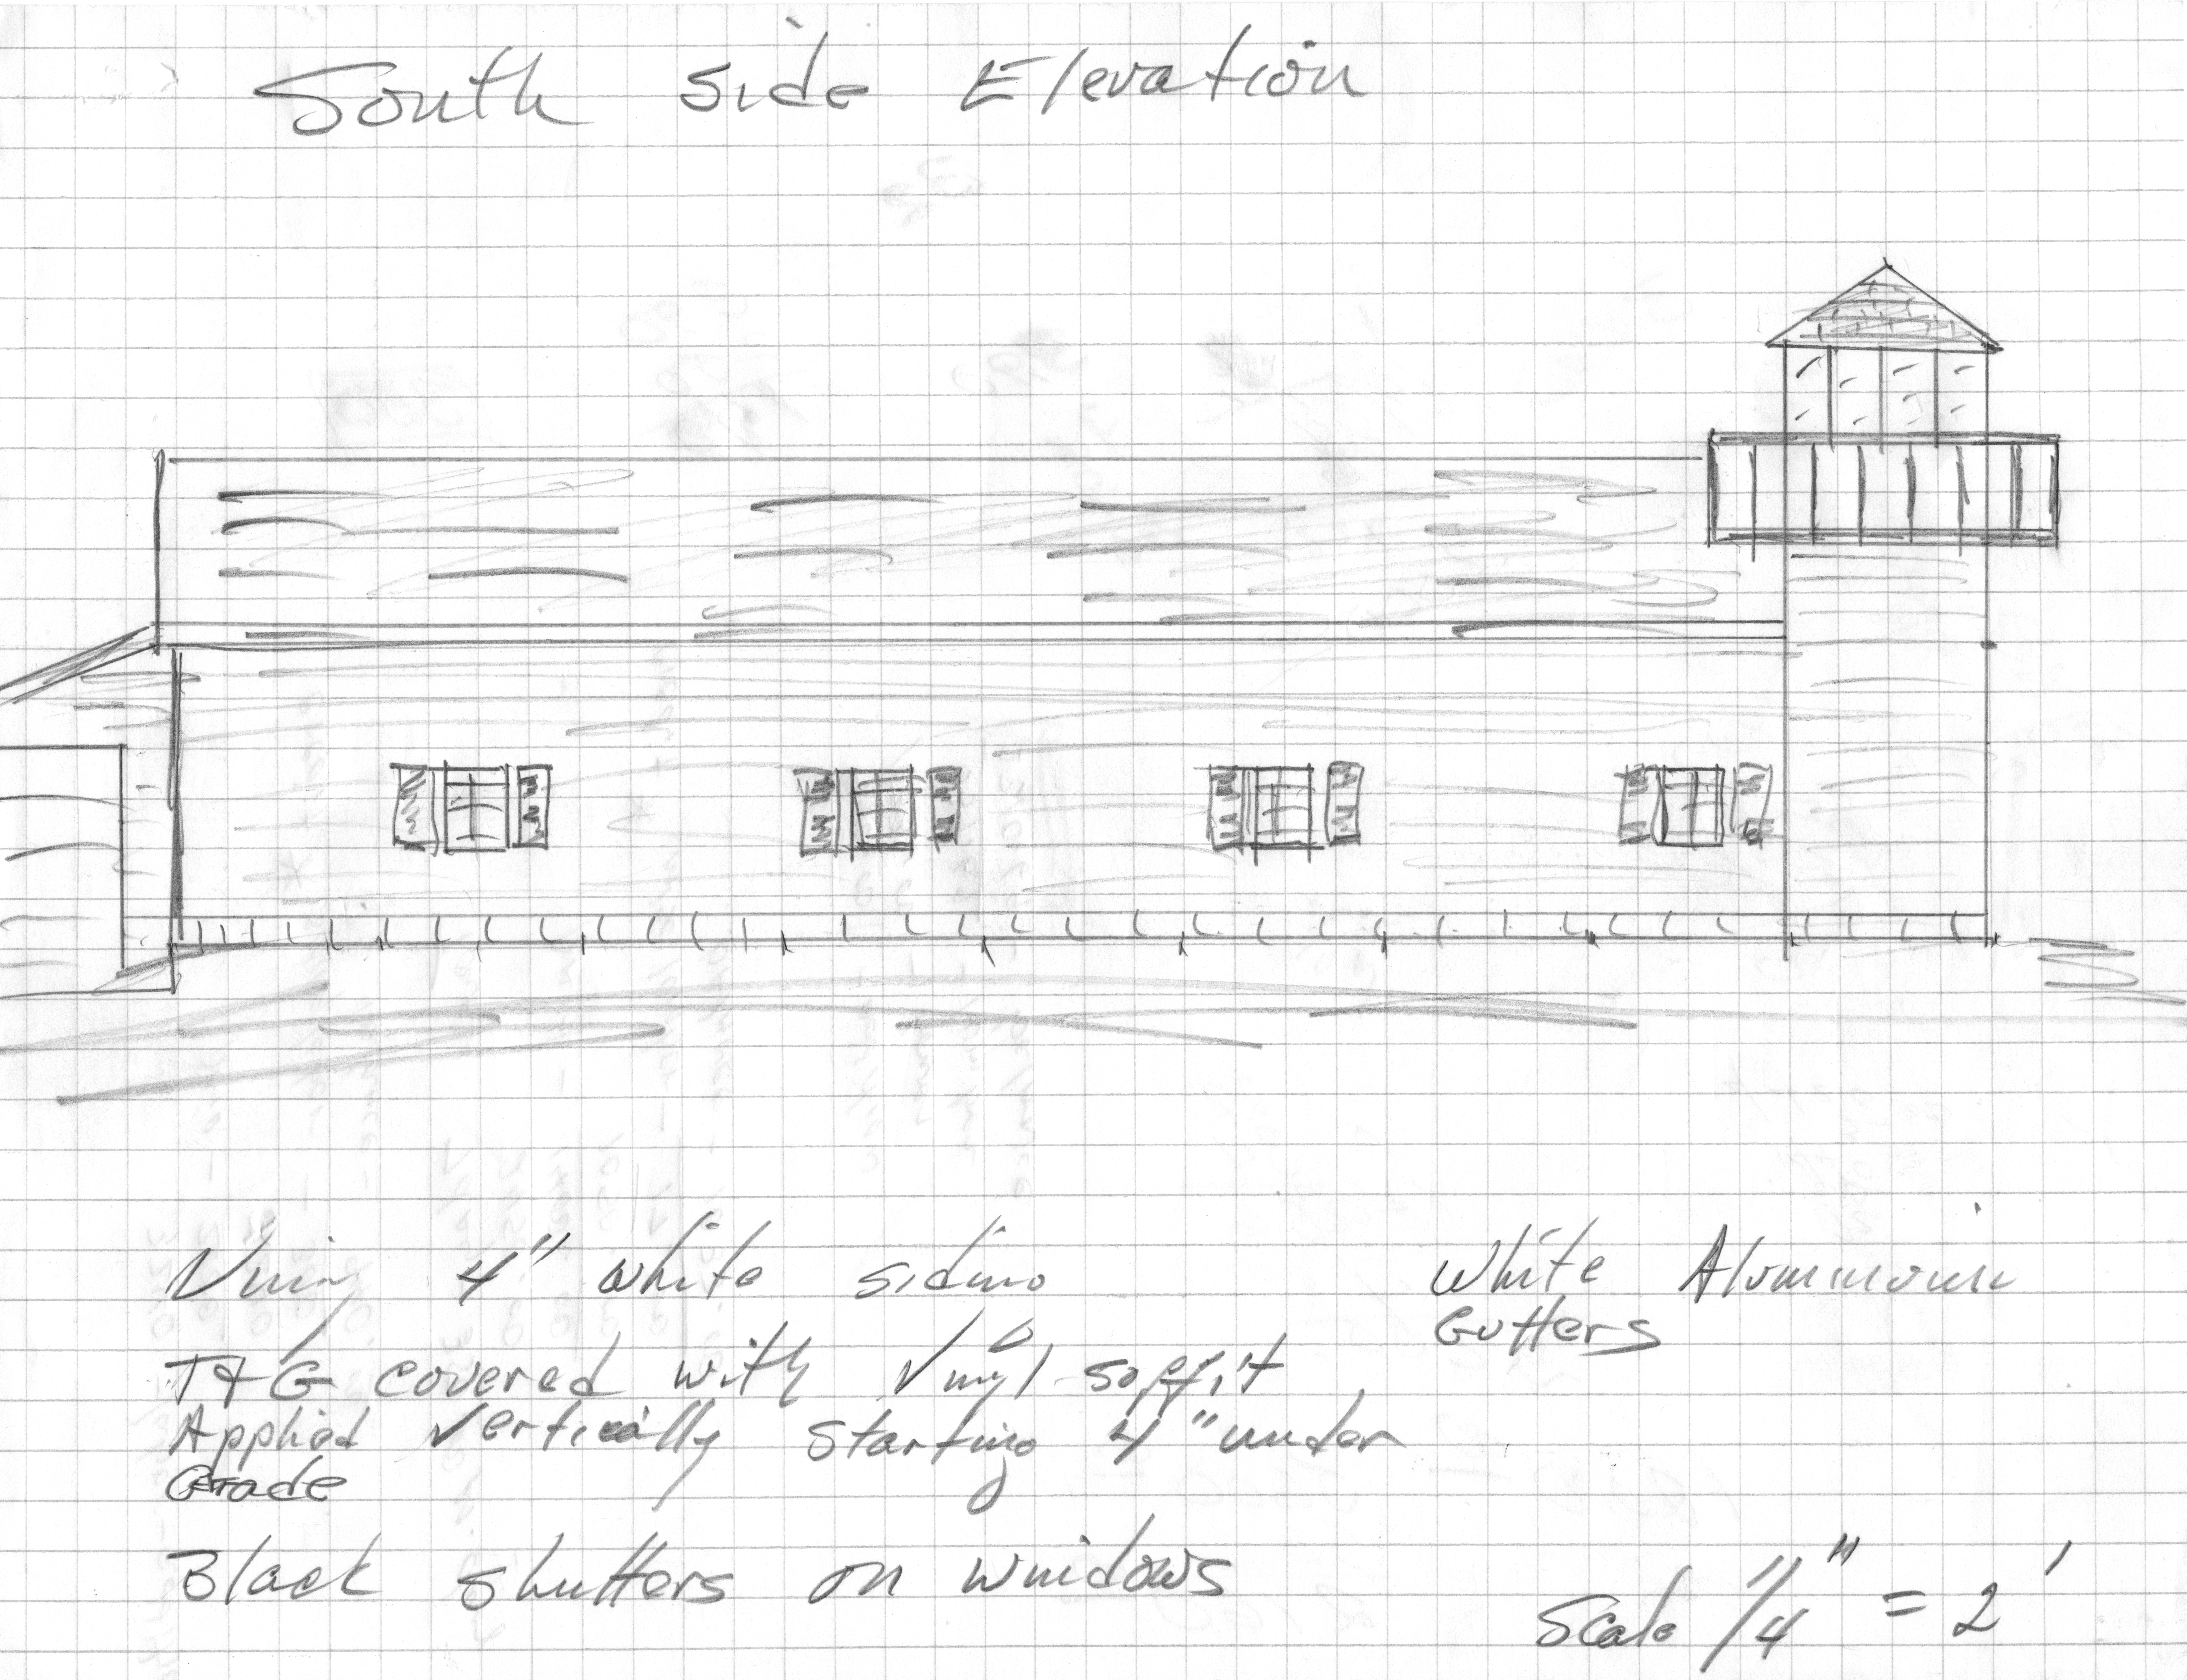 South side Elevation
Vinyl 4" white siding
White Aluminum
Gutters
T+G covered with Vinyl soffit
Applied vertically starting 4" under
Grade
Black shutters on windows
Scale 1/4" = 2'